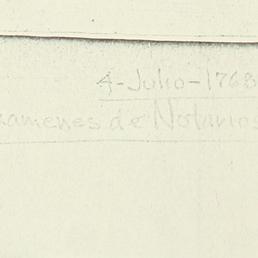 4-Julio-1768
xamenes de Notarios